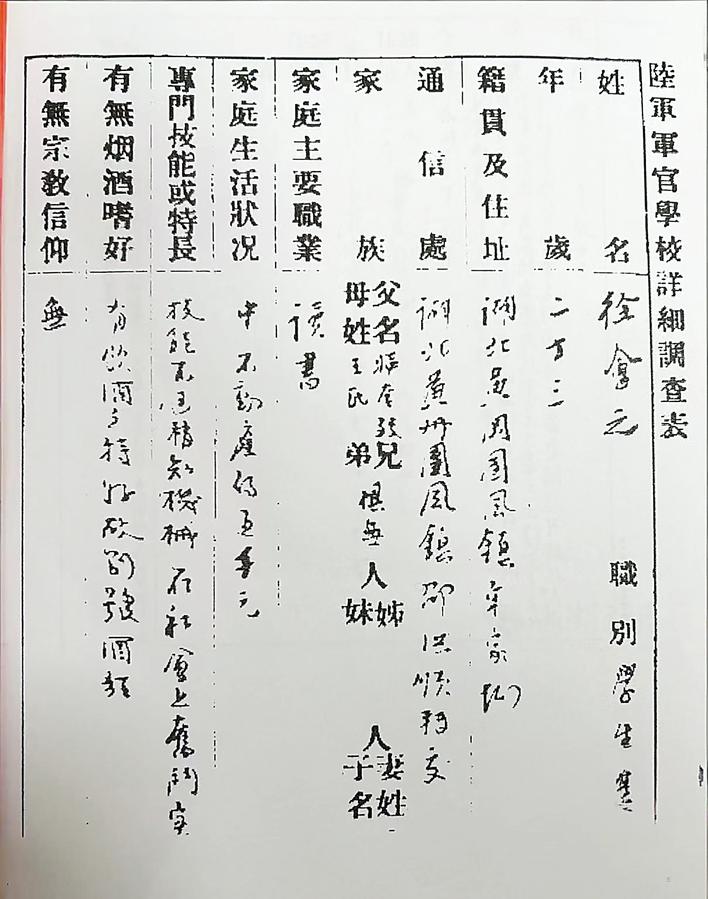 陸軍軍官學校詳細調查表
姓名 徐會元 職別 學生
年歲 二十二
籍貫及住址 湖北黃岡團風鎮
通信處 湖北黃州團風鎮 轉交
家族 父名 母姓 王氏 兄弟 俱無 人 姊妹 人 妻姓 子名
家庭主要職業 讀書
家庭生活狀况 中 不動產約五千元
專門技能或特長 技能不過稍知機械 在社會上奮鬥
有無烟酒嗜好 有飲酒之特好故別號酒
有無宗教信仰 無